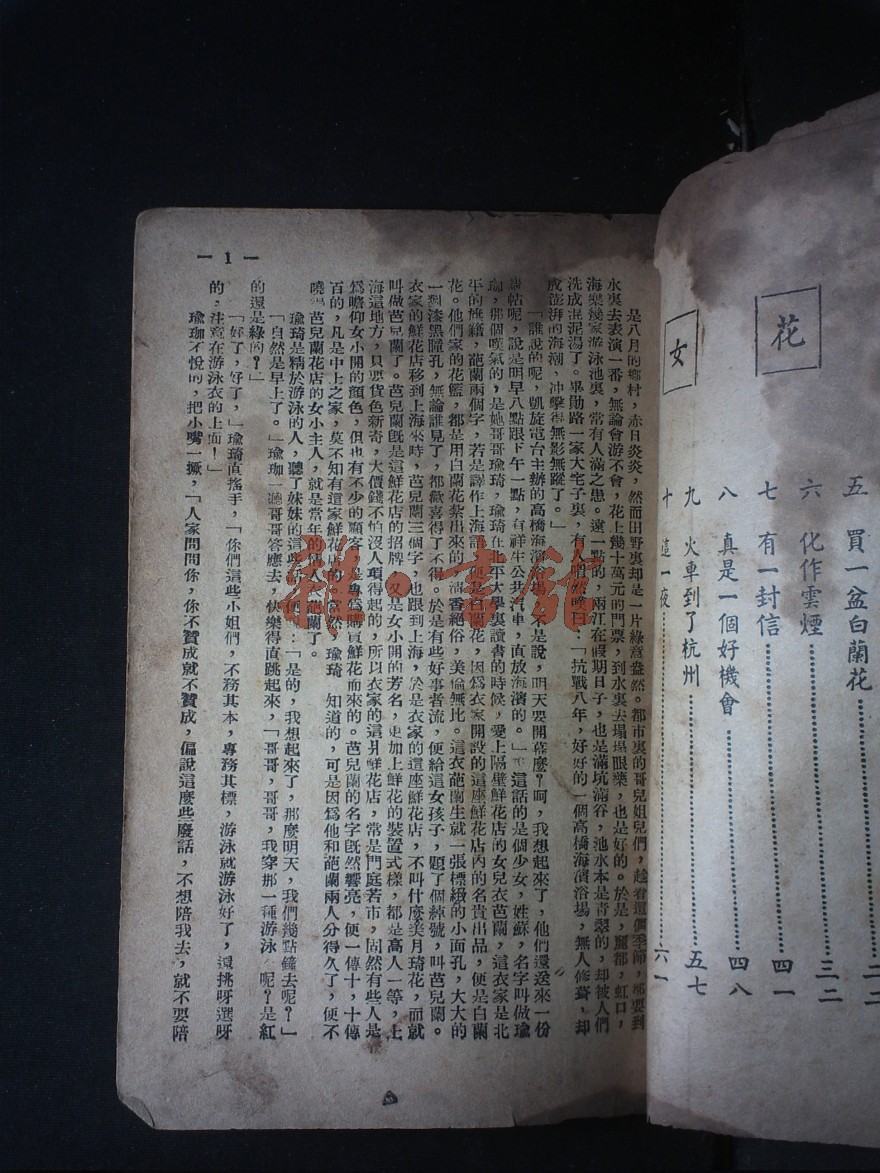 花
女
五 買一盆白蘭花
六 化作雲煙………三二
七 有一封信………四一
八 真是一個好機會………四八
九 火車到了杭州………五七
十 這一夜………六一
— 1 —
是八月的鄉村,赤日炎炎,然而田野裏却是一片綠意盎然。都市裏的哥兒姐兒們,趁着這個季節,都要到
水裏去表演一番,無論會游不會,花上幾十萬元的門票,到水裏去塌塌眼藥,也是好的。於是,麗都,虹口,
海樂幾家游泳池裏,常有人滿之患。遠一點的,兩江在假期日子,也是滿坑滿谷,池水本是青翠的,却被人們
洗成混泥湯了。畢勛路一家大宅子裏,有人喟然嘆曰:「抗戰八年,好好的一個高橋海濱浴場,無人修葺,却
成澎湃的海潮,冲擊得無影無蹤了。」
「誰說的呢,凱旋電台主辦的高橋海濱浴場,不是說,明天要開幕麼?呵,我想起來了,他們還送來一份
帖呢,說是明早八點跟下午一點,有祥生公共汽車,直放海濱的。」說這話的是個少女,姓蘇,名字叫做瑜
珈,那個嘆氣的,是她哥哥瑜琦,瑜琦在北平大學裏讀書的時候,愛上隔壁鮮花店的女兒衣芭蘭,這衣家是北
平的旗籍,葩蘭兩個字,若是譯作上海話,便是白蘭花,因爲衣家開設的這座鮮花店內的名貴出品,便是白蘭
花。他們家的花籃,都是用白蘭花紮出來的,清香絕俗,美倫無比。這衣葩蘭生就一張標緻的小面孔,大大的
一個漆黑瞳孔,無論誰見了,都歡喜得了不得。於是有些好事者流,便給這女孩子,題了個綽號,叫芭兒蘭。
衣家的鮮花店移到上海來時,芭兒蘭三個字,也跟到上海,於是衣家的這座鮮花店,不叫什麼美月琦花,而就
叫做芭兒蘭了。芭兒蘭既是這鮮花店的招牌,又是女小開的芳名,更加上鮮花的裝置式樣,都是高人一等,上
海這地方,只要貨色新奇,大價錢不怕沒人項得起的,所以衣家的這爿鮮花店,常是門庭若市,固然有些人是
爲瞻仰女小開的顏色,但也有不少的顧客,是專爲購買鮮花而來的。芭兒蘭的名字既然響亮,便一傳十,十傳
百的,凡是中上之家,莫不知有這家鮮花店的。當然,瑜琦 知道的,可是因爲他和葩蘭兩人分得久了,便不
曉得芭兒蘭花店的女小主人,就是當年的情人衣葩蘭了。
瑜琦是精於游泳的人,聽了妹妹的這些話,便 :「是的,我想起來了,那麼明天,我們幾點鐘去呢?」
「自然是早上了。」瑜珈一聽哥哥答應去,快樂得直跳起來,「哥哥,哥哥,我穿那一種游泳 呢?是紅
的還是綠的?」
「好了,好了,」瑜琦直搖手,「你們這些小姐們,不務其本,專務其標,游泳就游泳好了,還挑呀選呀
的,注意在游泳衣的上面!」
瑜珈不悅的,把小嘴一撅,「人家問問你,你不贊成就不贊成,偏說這麼些廢話,不想陪我去,就不要陪